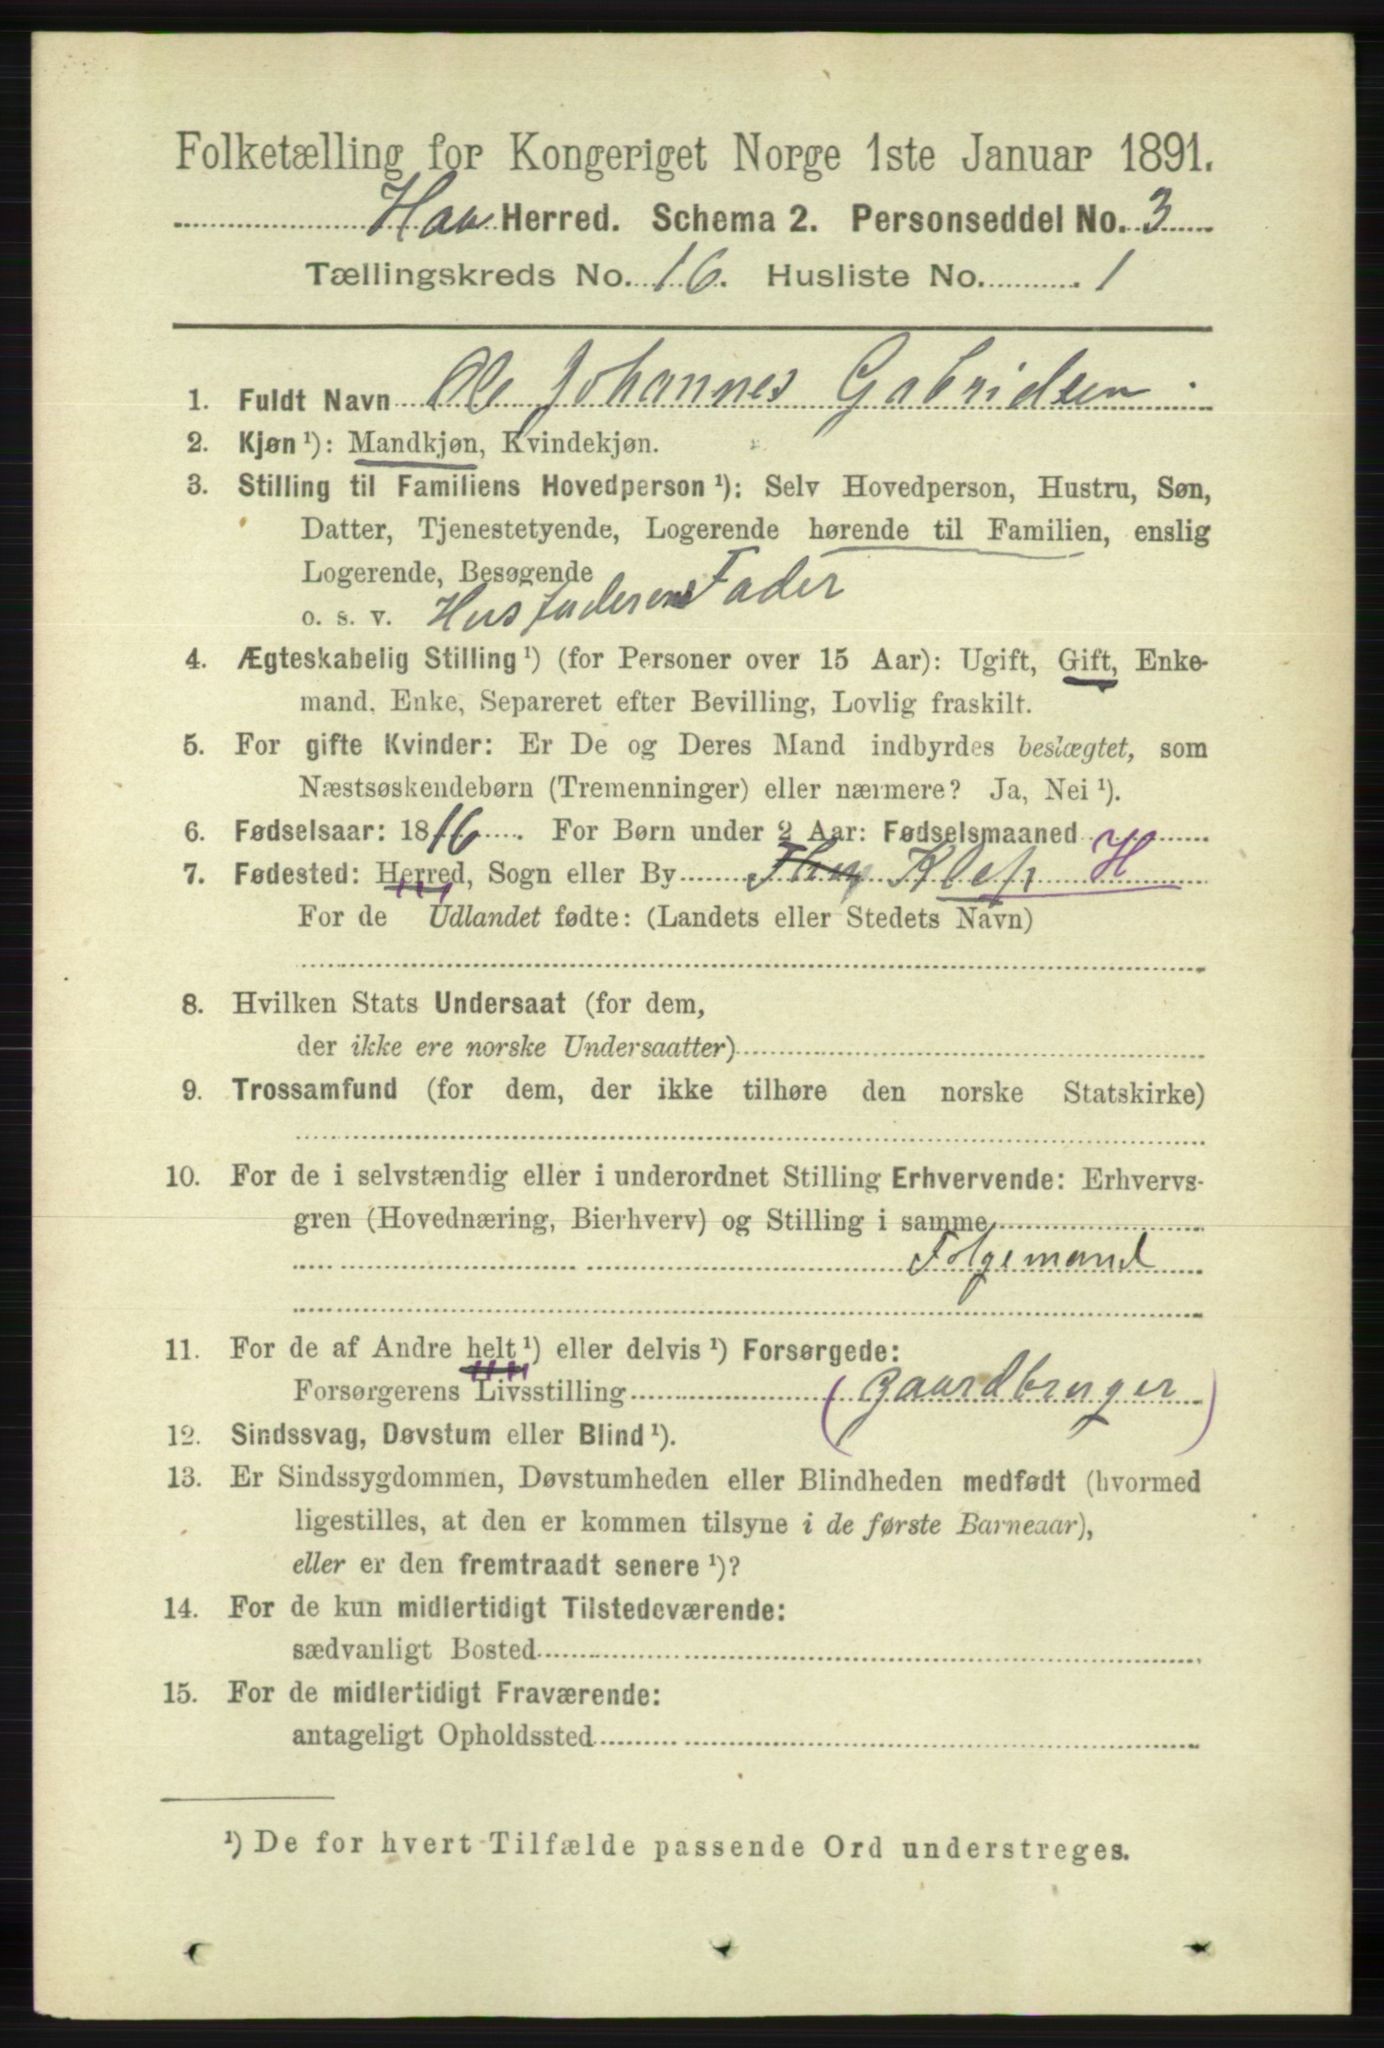 Folketælling for Kongeriget Norge 1ste Januar 1891.
Haa Herred. Schema 2. Personseddel No. 3
Tællingskreds No. 16. Husliste No. 1
1. Fuldt Navn Ole Johannes Gabrielsen.
2. Kjøn ¹): Mandkjøn, Kvindekjøn.
3. Stilling til Familiens Hovedperson ¹): Selv Hovedperson, Hustru, Søn,
Datter, Tjenestetyende, Logerende hørende til Familien, enslig
Logerende, Besøgende
o. s. v. Husfaderens Fader
4. Ægteskabelig Stilling ¹) (for Personer over 15 Aar): Ugift, Gift, Enke-
mand, Enke, Separeret efter Bevilling, Lovlig fraskilt.
5. For gifte Kvinder: Er De og Deres Mand indbyrdes beslægtet, som
Næstsøskendebørn (Tremenninger) eller nærmere? Ja, Nei ¹).
6. Fødselsaar: 1816. For Børn under 2 Aar: Fødselsmaaned
7. Fødested: Herred, Sogn eller By Klep H
For de Udlandet fødte: (Landets eller Stedets Navn)
8. Hvilken Stats Undersaat (for dem,
der ikke ere norske Undersaatter)
9. Trossamfund (for dem, der ikke tilhøre den norske Statskirke)
10. For de i selvstændig eller i underordnet Stilling Erhvervende: Erhvervs-
gren (Hovednæring, Bierhverv) og Stilling i samme
Folgemand
11. For de af Andre helt ¹) eller delvis ¹) Forsørgede:
Forsørgerens Livsstilling (gaardbruger)
12. Sindssvag, Døvstum eller Blind ¹).
13. Er Sindssygdommen, Døvstumheden eller Blindheden medfødt (hvormed
ligestilles, at den er kommen tilsyne i de første Barneaar),
eller er den fremtraadt senere ¹)?
14. For de kun midlertidigt Tilstedeværende:
sædvanligt Bosted
15. For de midlertidigt Fraværende:
antageligt Opholdssted
¹) De for hvert Tilfælde passende Ord understreges.